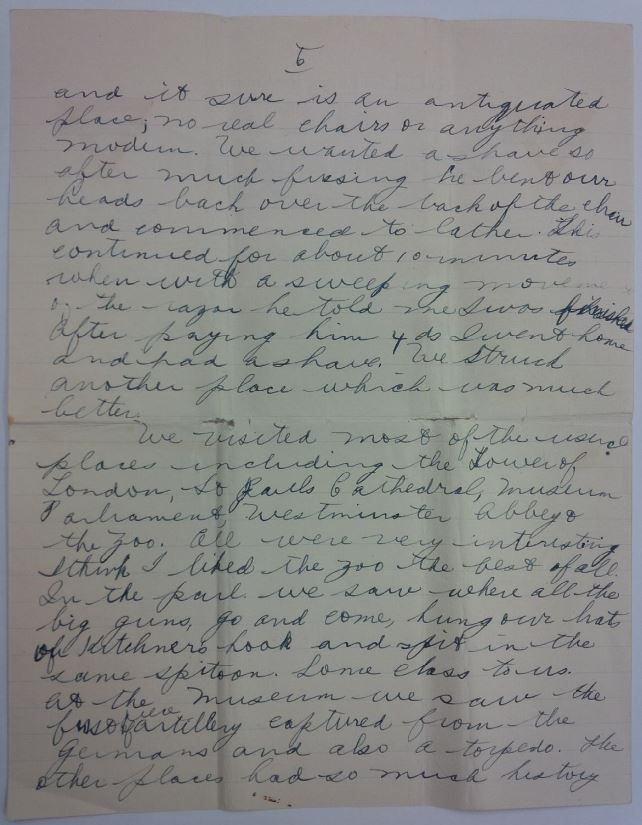 5
and it sure is an antiquated
place; no real chairs or anything
modern. We wanted a shave so
after much fussing he bent our
heads back over the back of the chair
and commenced to lather. This
continued for about 10 minutes
when with a sweeping movement
of the razor he told me I was finished
After paying him 4 ds I went home
and had a shave. We struck
another place which was much
better.
We visited most of the usual
places including the Tower of
London, St Pauls Cathedral, Museum
Parliament, Westminster Abbey &
the zoo. All were very interesting
I think I liked the zoo the best of all.
In the parl. we saw where all the
big guns, go and come, hung our hats
on Kitchners hook and spit in the
same spitoon. Some class to us.
At the Museum we saw the
first piece artillery captured from the
Germans and also a torpedo. The
other places had so much history